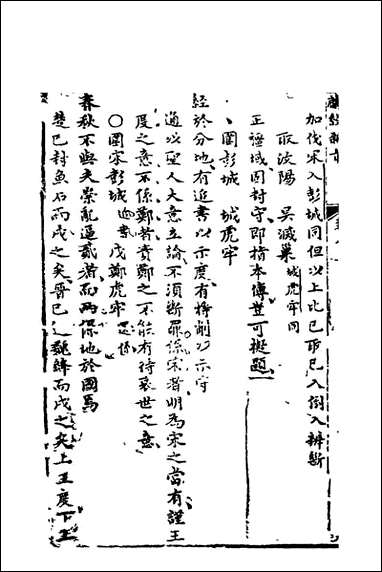 加伐宋入彭城同但以上比已取已入倒入辨斷
取汝陽 吳滅巢城虎牢同
正謹域固封守即指本傳豈可擬題
圍彭城 城虎牢
經於分地有追書以示度有特削以示守
通以聖人大意立論不須斷罪係宋者明為宋之當有謹王
度之意不係鄭者責鄭之不能有待衰世之意
○圍宋彭城追書戍鄭虎牢是係
春秋不與夫崇亂逼貳者而兩係地於國焉
楚已封魚石而戍之矣晉已城而戍之矣上王度下王